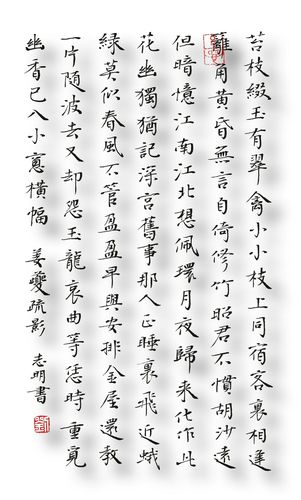 苔枝綴玉有翠禽小小枝上同宿客裏相逢
籬角黃昏無言自倚修竹昭君不慣胡沙遠
但暗憶江南江北想佩環月夜歸來化作此
花幽獨猶記深宮舊事那人正睡裏飛近蛾
綠莫似春風不管盈盈早與安排金屋還教
一片隨波去又却怨玉龍哀曲等恁時重覓
幽香已入小窻橫幅 姜夔疏影 志明書